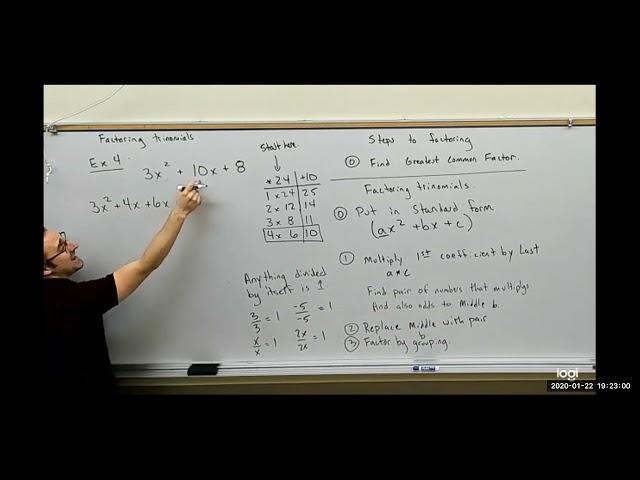 Factoring trinomials
Ex 4
3x² + 10x + 8
3x² + 4x + 6x
Start here
↓
* 24 | +10
1 x 24 | 25
2 x 12 | 14
3 x 8 | 11
4 x 6 | 10
Anything divided
by itself is 1
3/3 = 1 -5/-5 = 1
x/x = 1 2x/2x = 1
Steps to factoring
⓪ Find Greatest Common Factor.
Factoring trinomials.
⓪ Put in Standard form
(ax² + bx + c)
① Multiply 1st coefficient by Last
a*c
Find pair of numbers that multiplys
And also adds to Middle b.
② Replace Middle with pair
b
③ Factor by grouping.
logi
2020-01-22 19:23:00